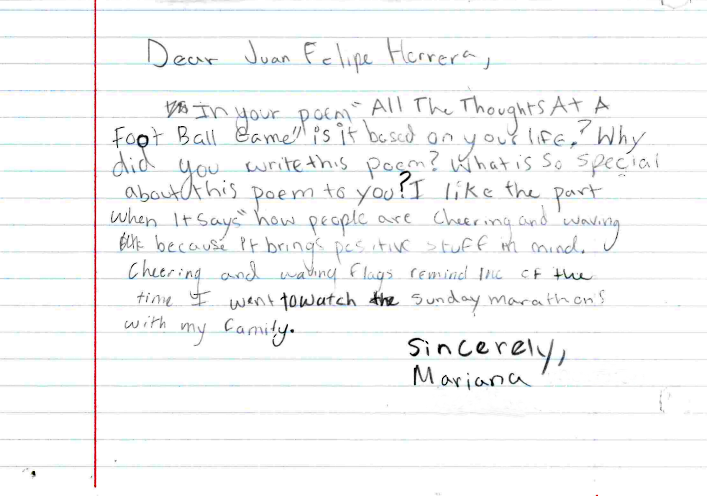 Dear Juan Felipe Herrera,
In your poem "All The Thoughts At A
Foot Ball Game" is it based on your life? Why
did you write this poem? What is so special
about this poem to you? I like the part
when It says "how people are cheering and waving
because it brings positive stuff in mind.
Cheering and waving flags remind me of the
time I went to watch the Sunday marathon's
with my family.
Sincerely,
Mariana